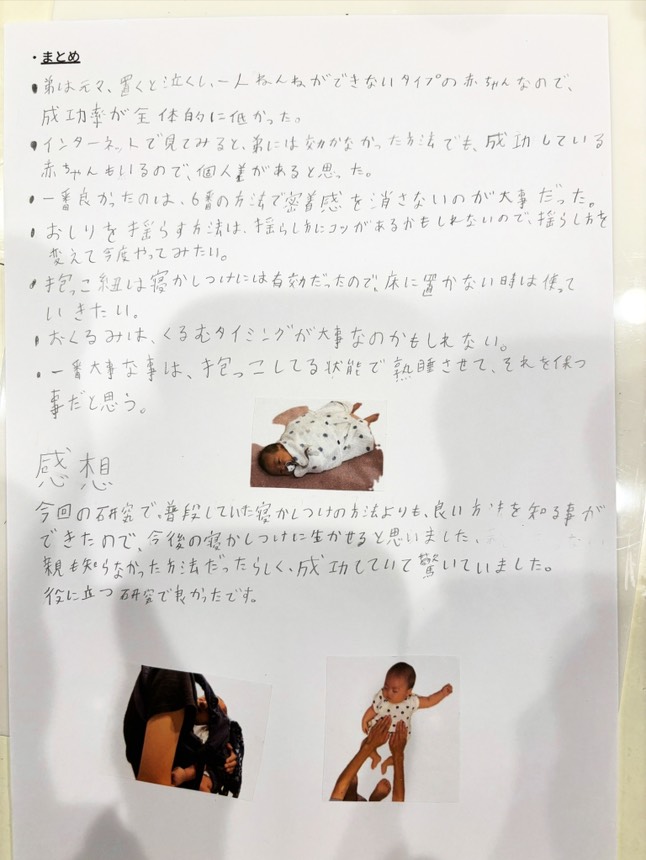 ・まとめ
・弟は元々、置くと泣くし、一人ねんねができないタイプの赤ちゃんなので、
成功率が全体的に低かった。
・インターネットで見てみると、弟には効かなかった方法でも、成功している
赤ちゃんもいるので、個人差があると思った。
・一番良かったのは、6番の方法で密着感を消さないのが大事だった。
・おしりを揺らす方法は、揺らし方にコツがあるかもしれないので、揺らし方を
変えて今度やってみたい。
・抱っこ紐は寝かしつけには有効だったので、床に置かない時は使って
いきたい。
・おくるみは、くるむタイミングが大事なのかもしれない。
・一番大事な事は、抱っこしてる状態で熟睡させて、それを保つ
事だと思う。
感想
今回の研究で、普段していた寝かしつけの方法よりも、良い方を知る事が
できたので、今後の寝かしつけに生かせると思いました、
親も知らなかった方法だったらしく、成功していて驚いていました。
役に立つ研究で良かったです。